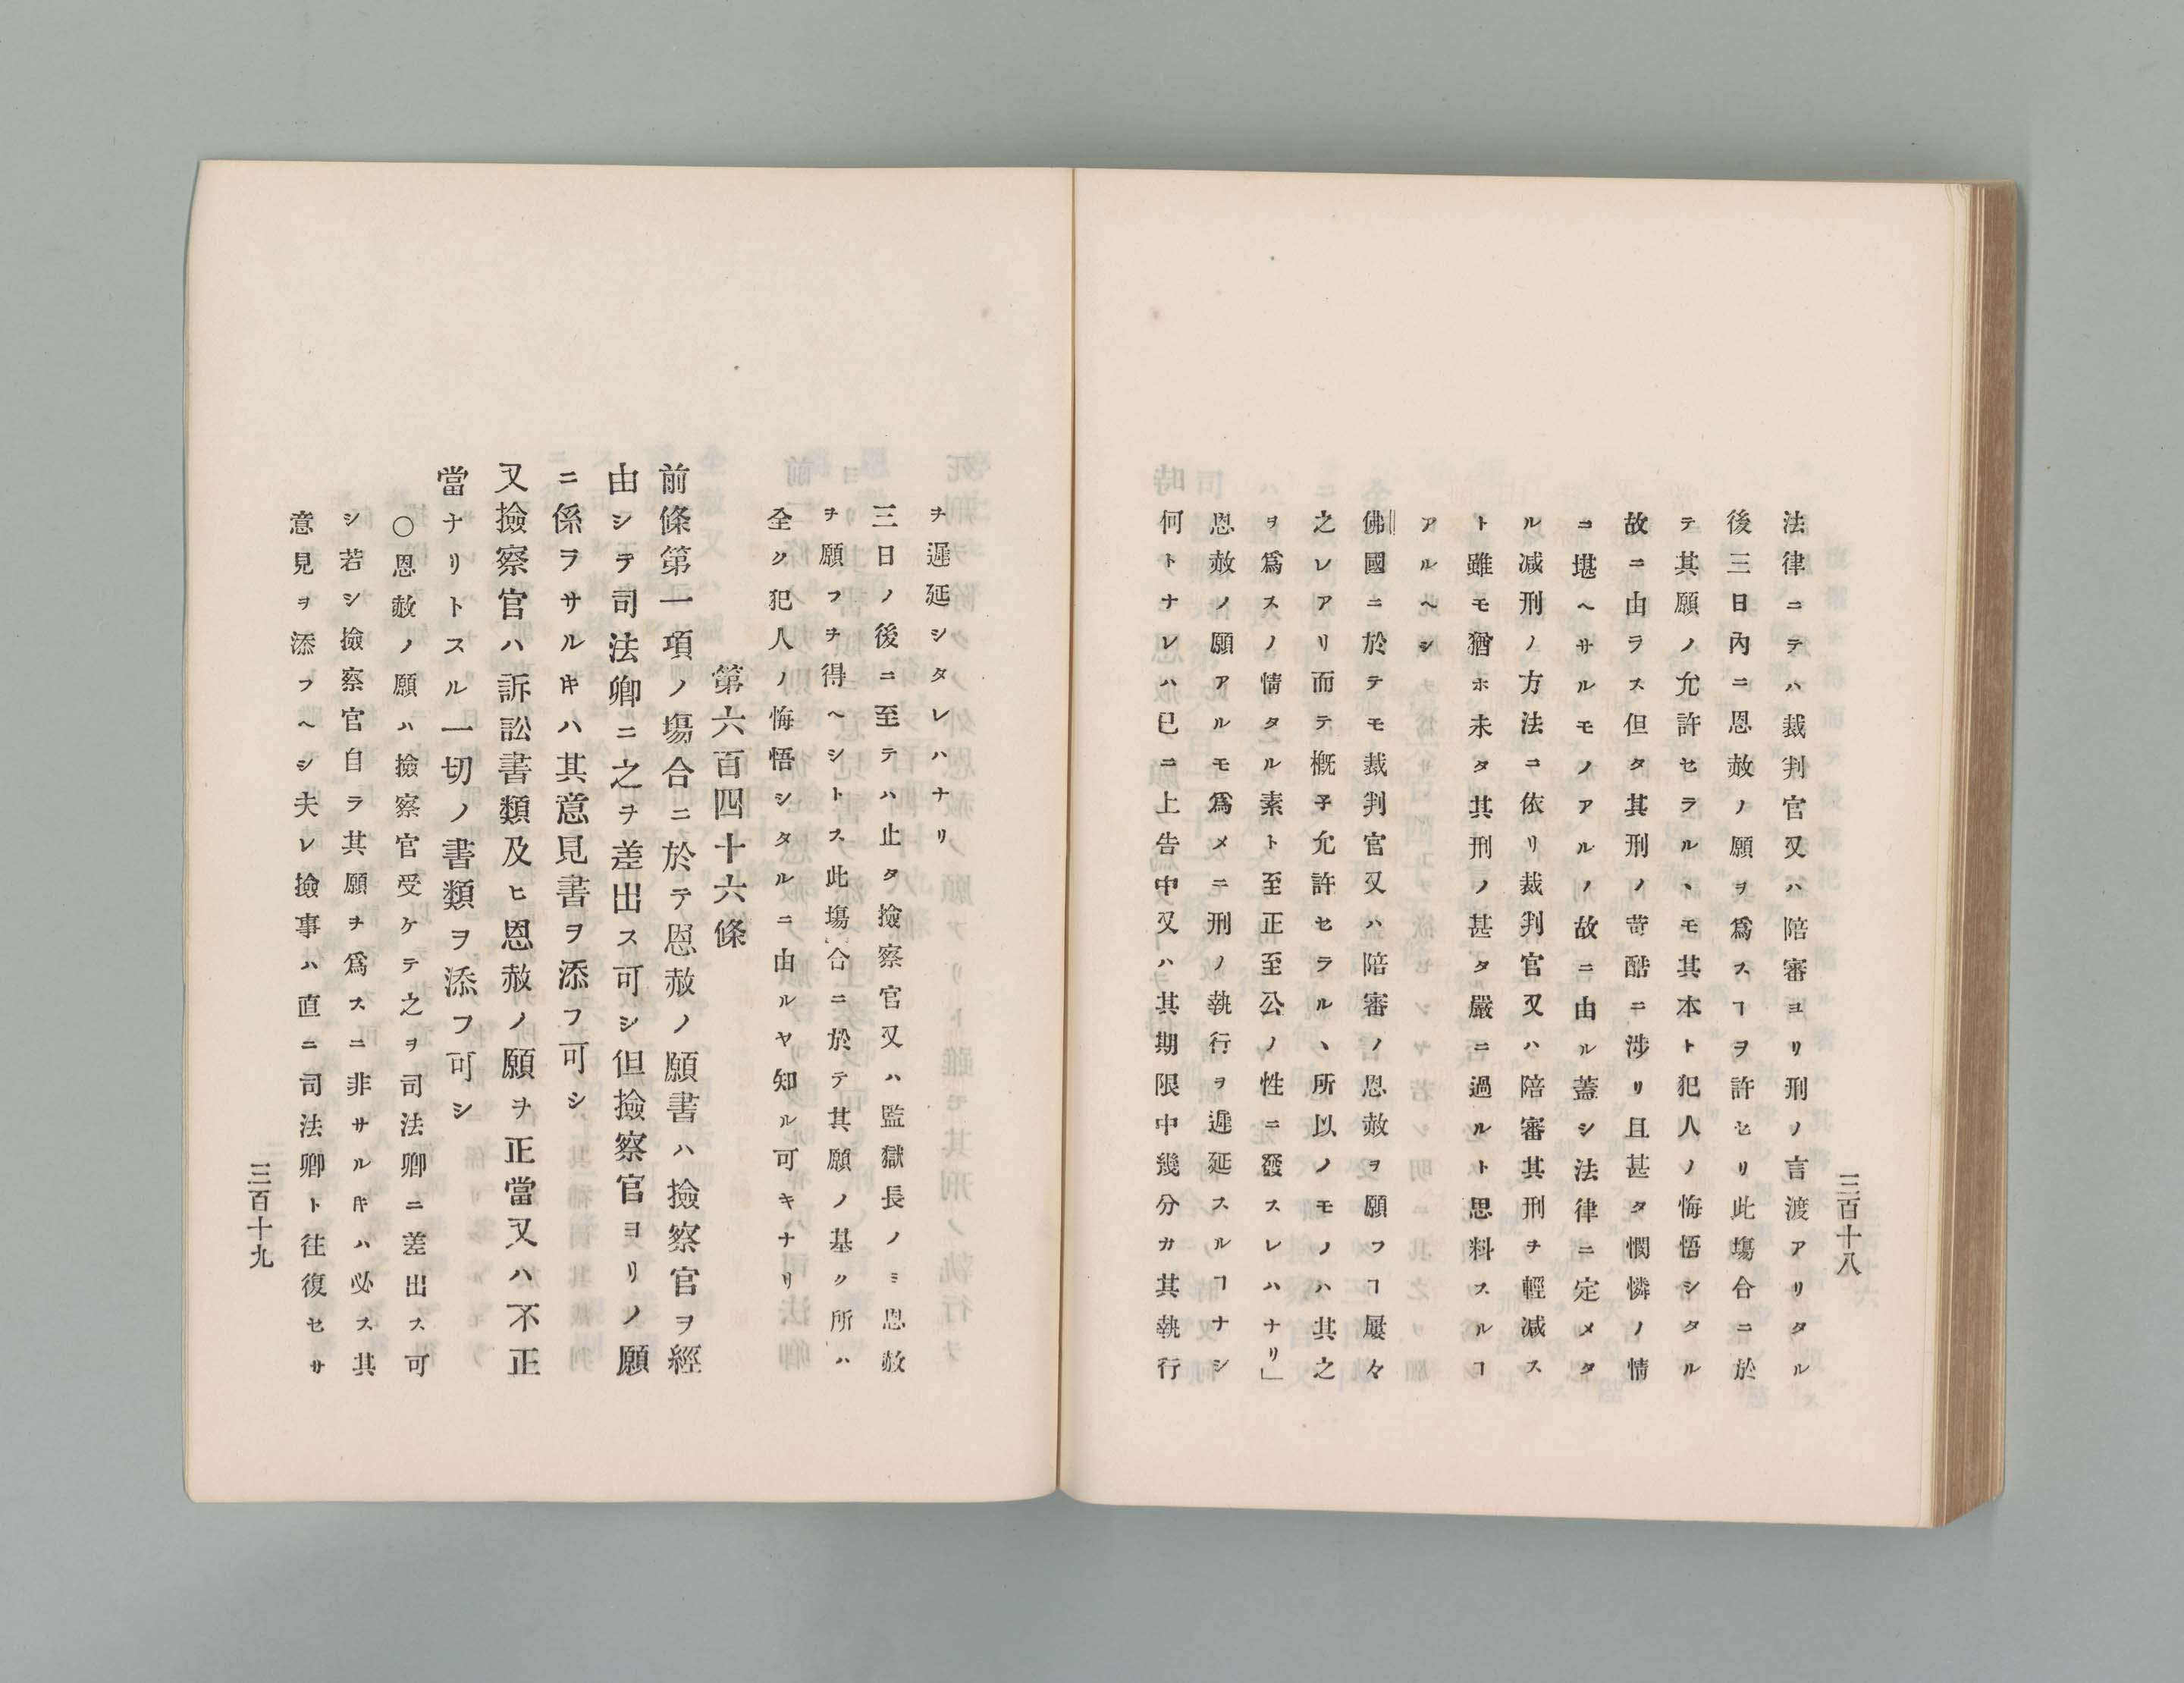 三百十八
法律ニテハ裁判官又ハ陪審ヨリ刑ノ言渡アリタル
後三日內ニ恩赦ノ願ヲ爲スヿヲ許セリ此塲合ニ於
テ其願ノ允許セラルヽモ其本ト犯人ノ悔悟シタル
故ニ由ラス但タ其刑ノ苛酷ニ涉リ且甚タ憫憐ノ情
ニ堪ヘサルモノアルノ故ニ由ル蓋シ法律ニ定メタ
ル减刑ノ方法ニ依リ裁判官又ハ陪審其刑ヲ輕减ス
ト雖モ猶ホ未タ其刑ノ甚タ嚴ニ過ルト思料スルヿ
アルヘシ
佛國ニ於テモ裁判官又ハ陪審ノ恩赦ヲ願フヿ屢々
之レアリ而テ概子允許セラルヽ所以ノモノハ其之
ヲ爲スノ情タル素ト至正至公ノ性ニ發スレハナリ」
恩赦ノ願アルモ爲メニ刑ノ執行ヲ遲延スルヿナシ
何トナレハ已ニ上告中又ハ其期限中幾分カ其執行
ヲ遲延シタレハナリ
三日ノ後ニ至テハ止タ撿察官又ハ監獄長ノミ恩赦
ヲ願フヲ得ヘシトス此塲合ニ於テ其願ノ基ク所ハ
全ク犯人ノ悔悟シタルニ由ルヤ知ル可キナリ
第六百四十六條
前條第一項ノ塲合ニ於テ恩赦ノ願書ハ撿察官ヲ經
由シテ司法卿ニ之ヲ差出ス可シ但撿察官ヨリノ願
ニ係ヲサルキハ其意見書ヲ添フ可シ
又撿察官ハ訴訟書類及ヒ恩赦ノ願ヲ正當又ハ不正
當ナリトスル一切ノ書類ヲ添フ可シ
〇恩赦ノ願ハ撿察官受ケテ之ヲ司法卿ニ差出ス可
シ若シ撿察官自ラ其願ヲ爲スニ非サルキハ必ス其
意見ヲ添フヘシ夫レ撿事ハ直ニ司法卿ト往復セサ
三百十九